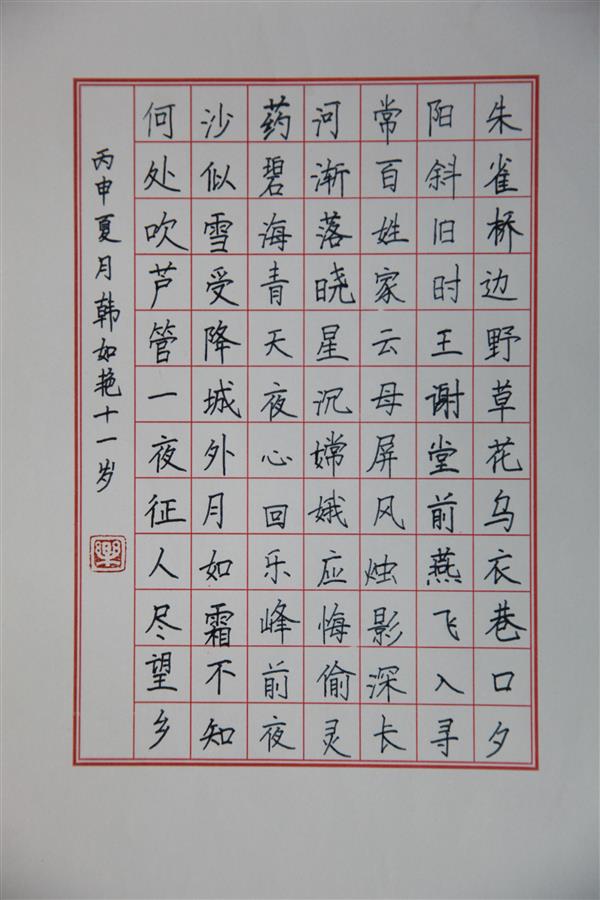 朱雀桥边野草花乌衣巷口夕
阳斜旧时王谢堂前燕飞入寻
常百姓家云母屏风烛影深长
河渐落晓星沉嫦娥应悔偷灵
药碧海青天夜心回乐峰前夜
沙似雪受降城外月如霜不知
何处吹芦管一夜征人尽望乡
丙申夏月韩如艳十一岁